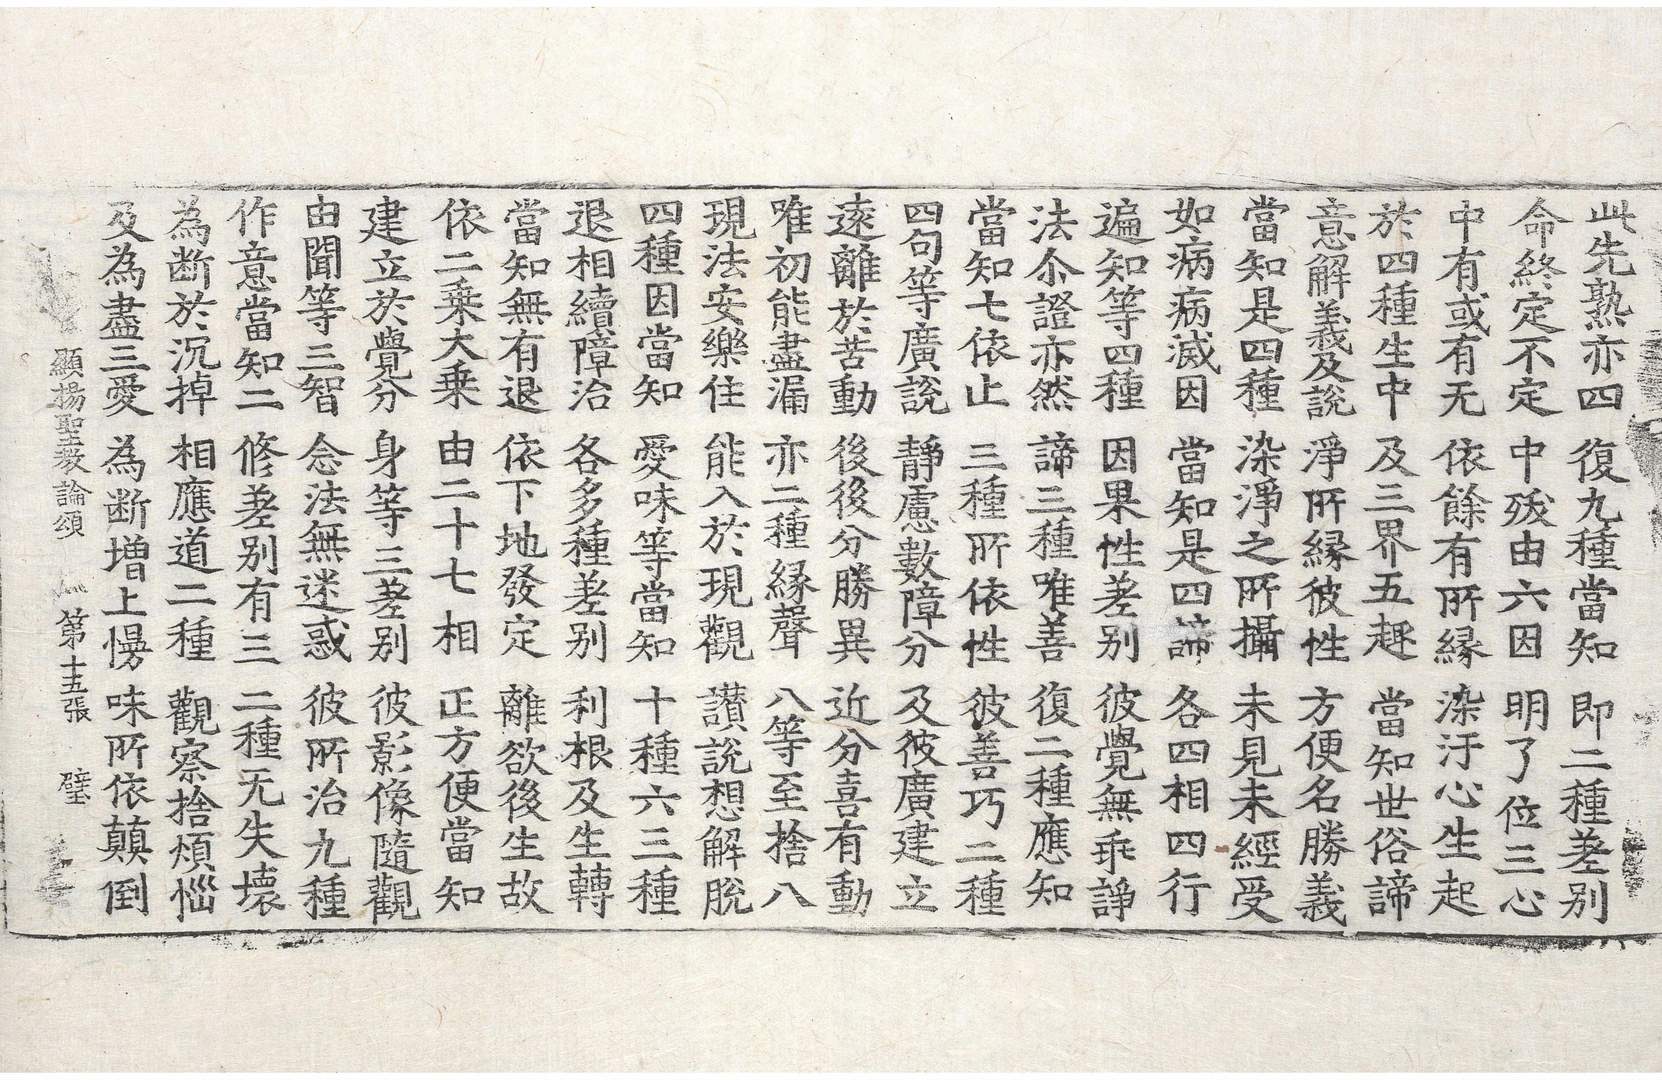 此先熟亦四 復九種當知 即二種差别
命終定不定 中殁由六因 明了位三心
中有或有无 依餘有所縁 染汙心生起
於四種生中 及三界五趣 當知世俗諦
意解義及說 淨所縁彼性 方便名勝義
當知是四種 染淨之所攝 未見未經受
如病病滅因 當知是四諦 各四相四行
遍知等四種 因果性差别 彼覺無乖諍
法尒證亦然 諦三種唯善 復二種應知
當知七依止 三種所依性 彼善巧二種
四句等廣說 靜慮數障分 及彼廣建立
逺離於苦動 後後分勝異 近分喜有動
唯初能盡漏 亦二種縁聲 八等至捨八
現法安樂住 能入於現觀 讃說想解脫
四種因當知 愛味等當知 十種六三種
退相續障治 各多種差别 利根及生轉
當知無有退 依下地發定 離欲後生故
依二乘大乘 由二十七相 正方便當知
建立於覺分 身等三差别 彼影像隨觀
由聞等三智 念法無迷惑 彼所治九種
作意當知二 修差别有三 二種无失壞
為断於沉掉 相應道二種 觀察捨煩惱
及為盡三愛 為断增上慢 味所依顛倒
顯揚聖教論頌 第十五張 璧